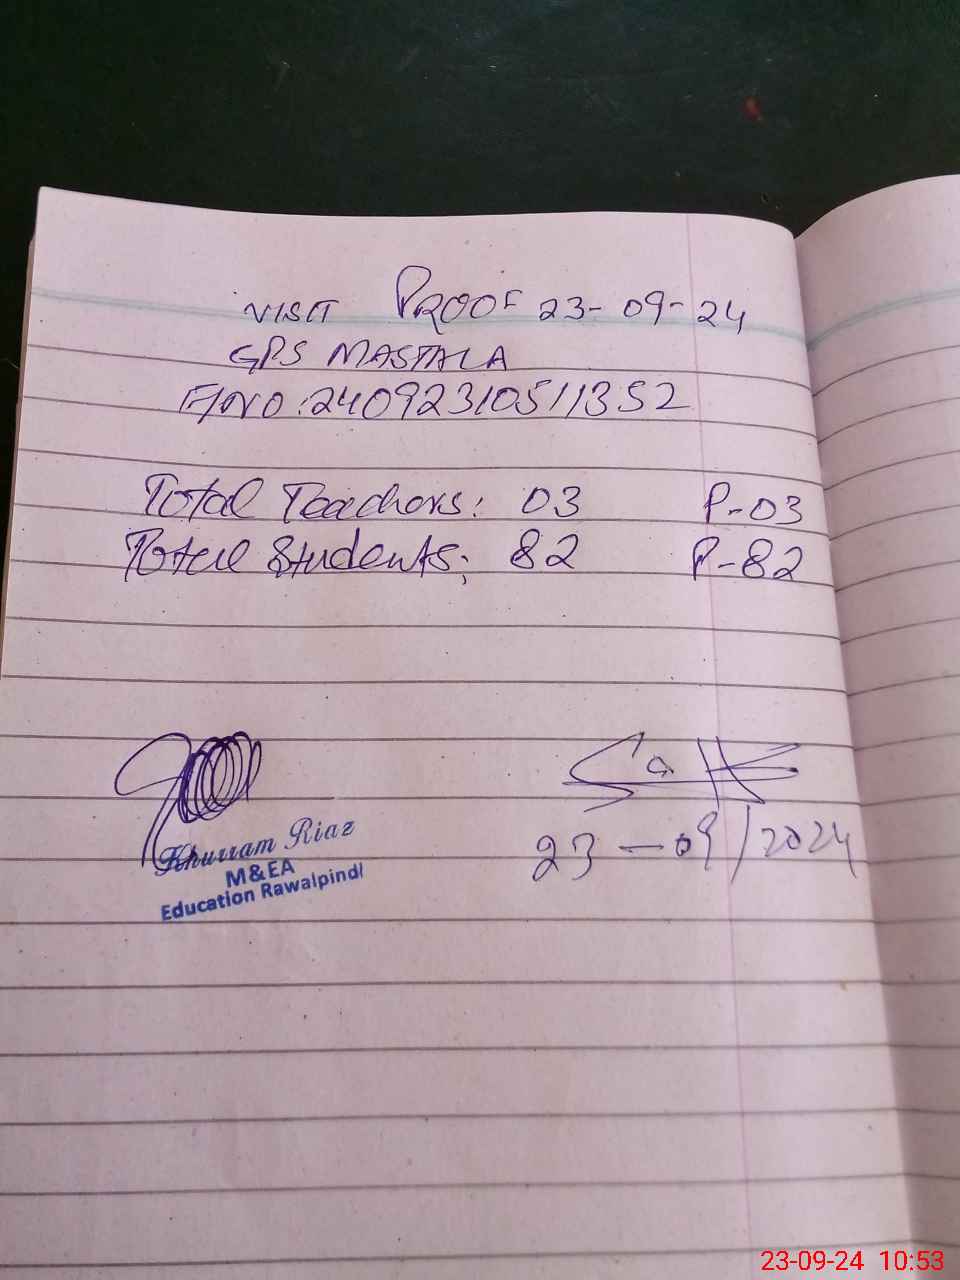 VISIT PROOF 23-09-24
GPS MASTALA
F/NO:24092310511352
Total Teachers: 03 P-03
Total Students: 82 P-82
Khurram Riaz
M&EA
Education Rawalpindi
23-09/2024
23-09-24 10:53